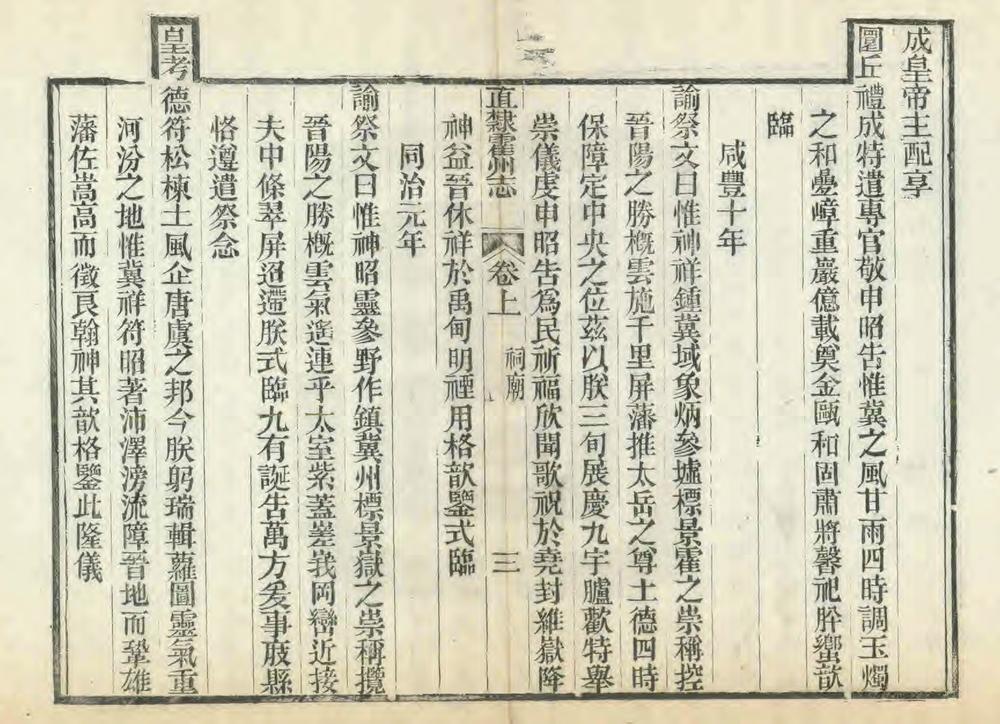 成皇帝主配享
圜丘禮成特遣專官敬申昭告惟冀之風甘雨四時調玉燭
之和疊嶂重巖億載奠金甌和固肅將馨祀肸蠁歆
臨
咸豐十年
諭祭文曰惟神祥鍾冀域象炳參墟標景霍之崇稱控
晉陽之勝概雲施千里屏藩推太岳之尊土德四時
保障定中央之位茲以朕三旬展慶九宇臚歡特舉
崇儀虔申昭告為民祈福欣聞歌祝於堯封維嶽降
直隸霍州志 卷上 祠廟 三
神益晉休祥於禹甸明禋用格歆鑒式臨
同治元年
諭祭文曰惟神昭靈參野作鎮冀州標景嶽之崇稱攬
晉陽之勝概雲氣遙連乎太室紫蓋嵳峩岡巒近接
夫中條翠屏迢遰朕式臨九有誕告萬方爰事庪縣
恪邅遣祭念
皇考德符松棟土風企唐虞之邦今朕躬瑞輯蘿圖靈氣重
河汾之地惟冀祥符昭著沛澤滂流障晉地而鞏雄
藩佐嵩高而徵良翰神其歆格鑒此隆儀